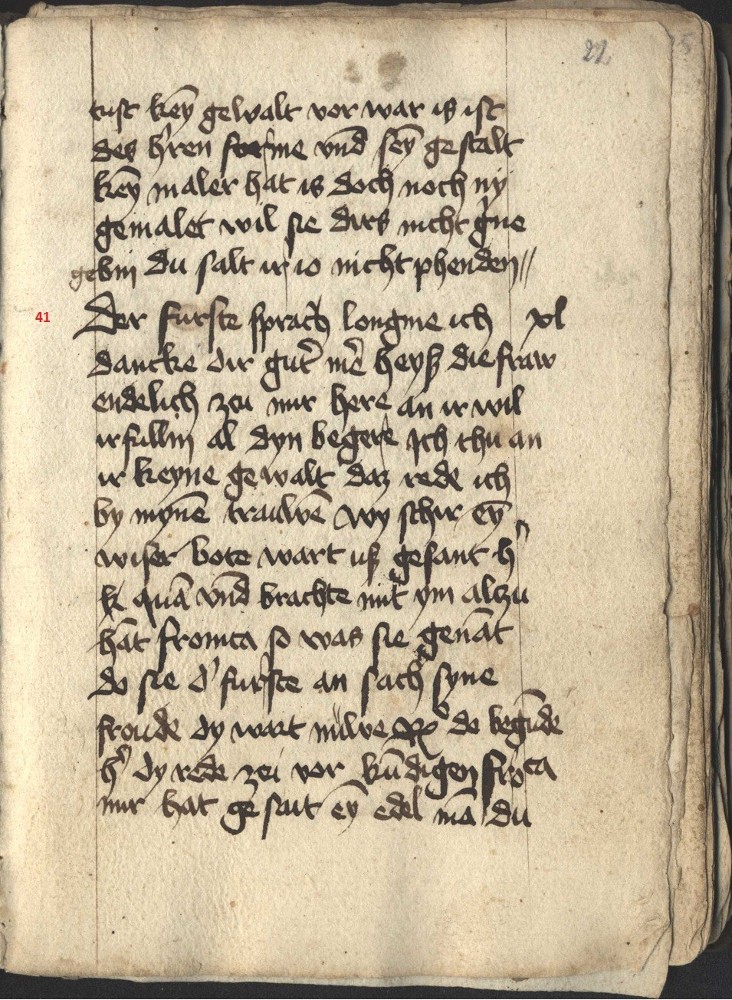 22
tust keȳ gewalt vor war is ist
des h'ren forme vnd seȳ gestalt
keȳ maler hat is doch noch ny
gemalet wil sie dirs nicht gūne
gebin du salt ir io nicht phenden //
41 Der furste sprach longine ich xl
dancke dir gut' me' heyß die fraw
endelich zcu mir here an ir wil
irfullin al dyn begere Ich thu an
ir keyne gewalt daz rede ich
by mynē trauwē wy schir eȳ
wiser bote wart uß gesant h'
k quā vnd brachte mit ym alzu
hāt fronica so was sie genāt
do sie d' furste an sach syne
froude dy wart nuwe do begūde
h' dy rede zcu vor kūdigen froca
mir hat gesait eȳ edel mā du